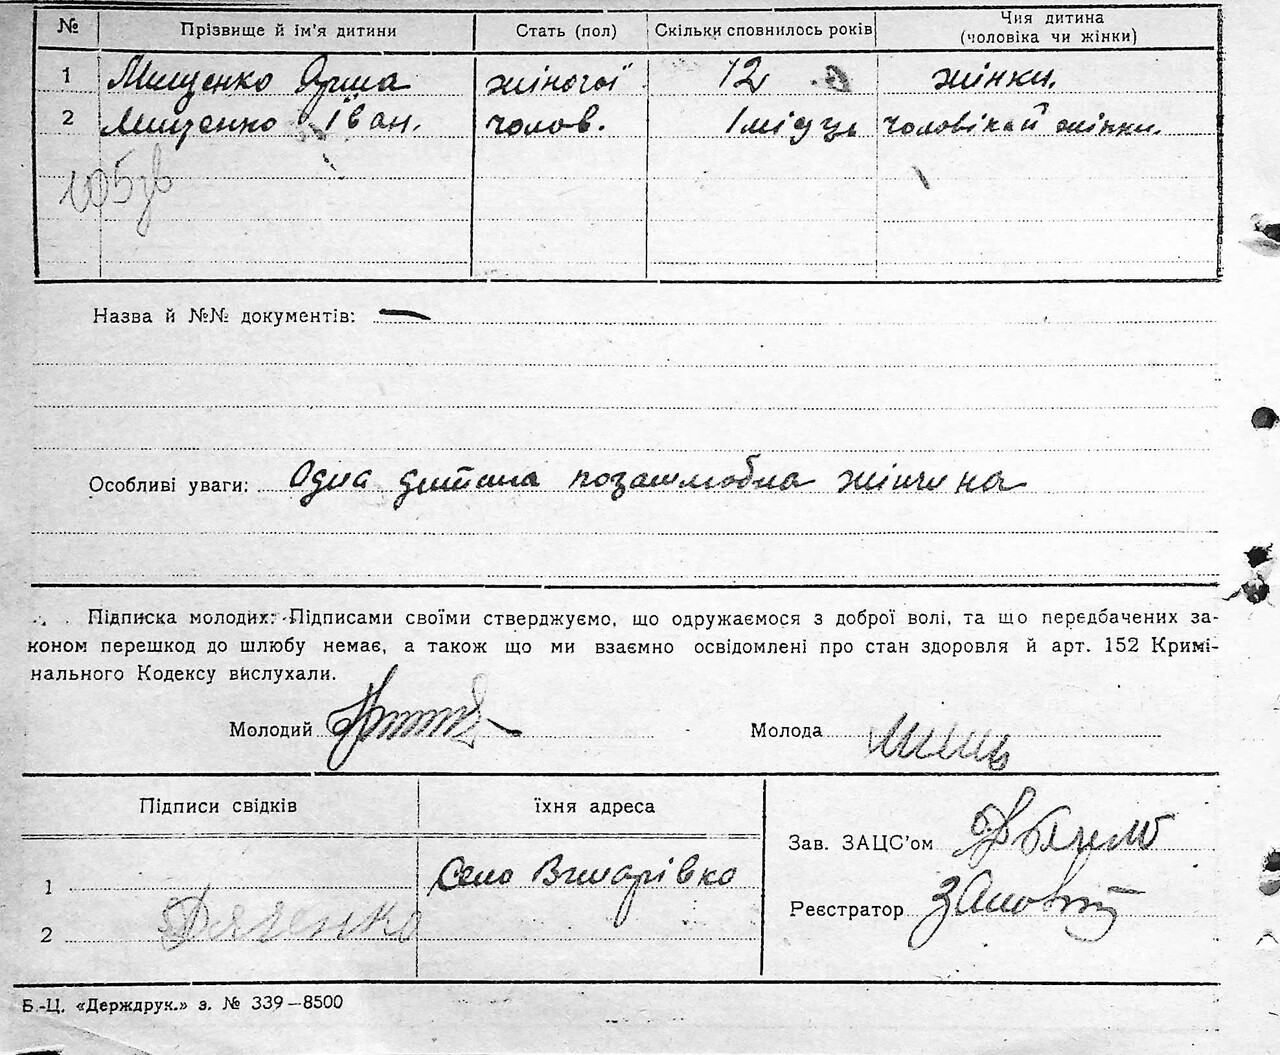 № Прізвище й ім'я дитини Стать (пол) Скільки сповнилось років Чия дитина (чоловіка чи жінки)
1 Мищенко жіночої 12 жінки.
2 Мищенко Іван. чолов. 1 місяць чоловіка й жінки.
Назва й №№ документів: —
Особливі уваги: Одна дитина позашлюбна жінчина
Підписка молодих: Підписами своїми стверджуємо, що одружаємося з доброї волі, та що передбачених за-
коном перешкод до шлюбу немає, а також що ми взаємно освідомлені про стан здоровля й арт. 152 Кримі-
нального Кодексу вислухали.
Молодий Молода
Підписи свідків їхня адреса
Зав. ЗАЦС'ом
1 Село
Реєстратор
2 Дяченко
Б.-Ц. «Держдрук.» з. № 339—8500